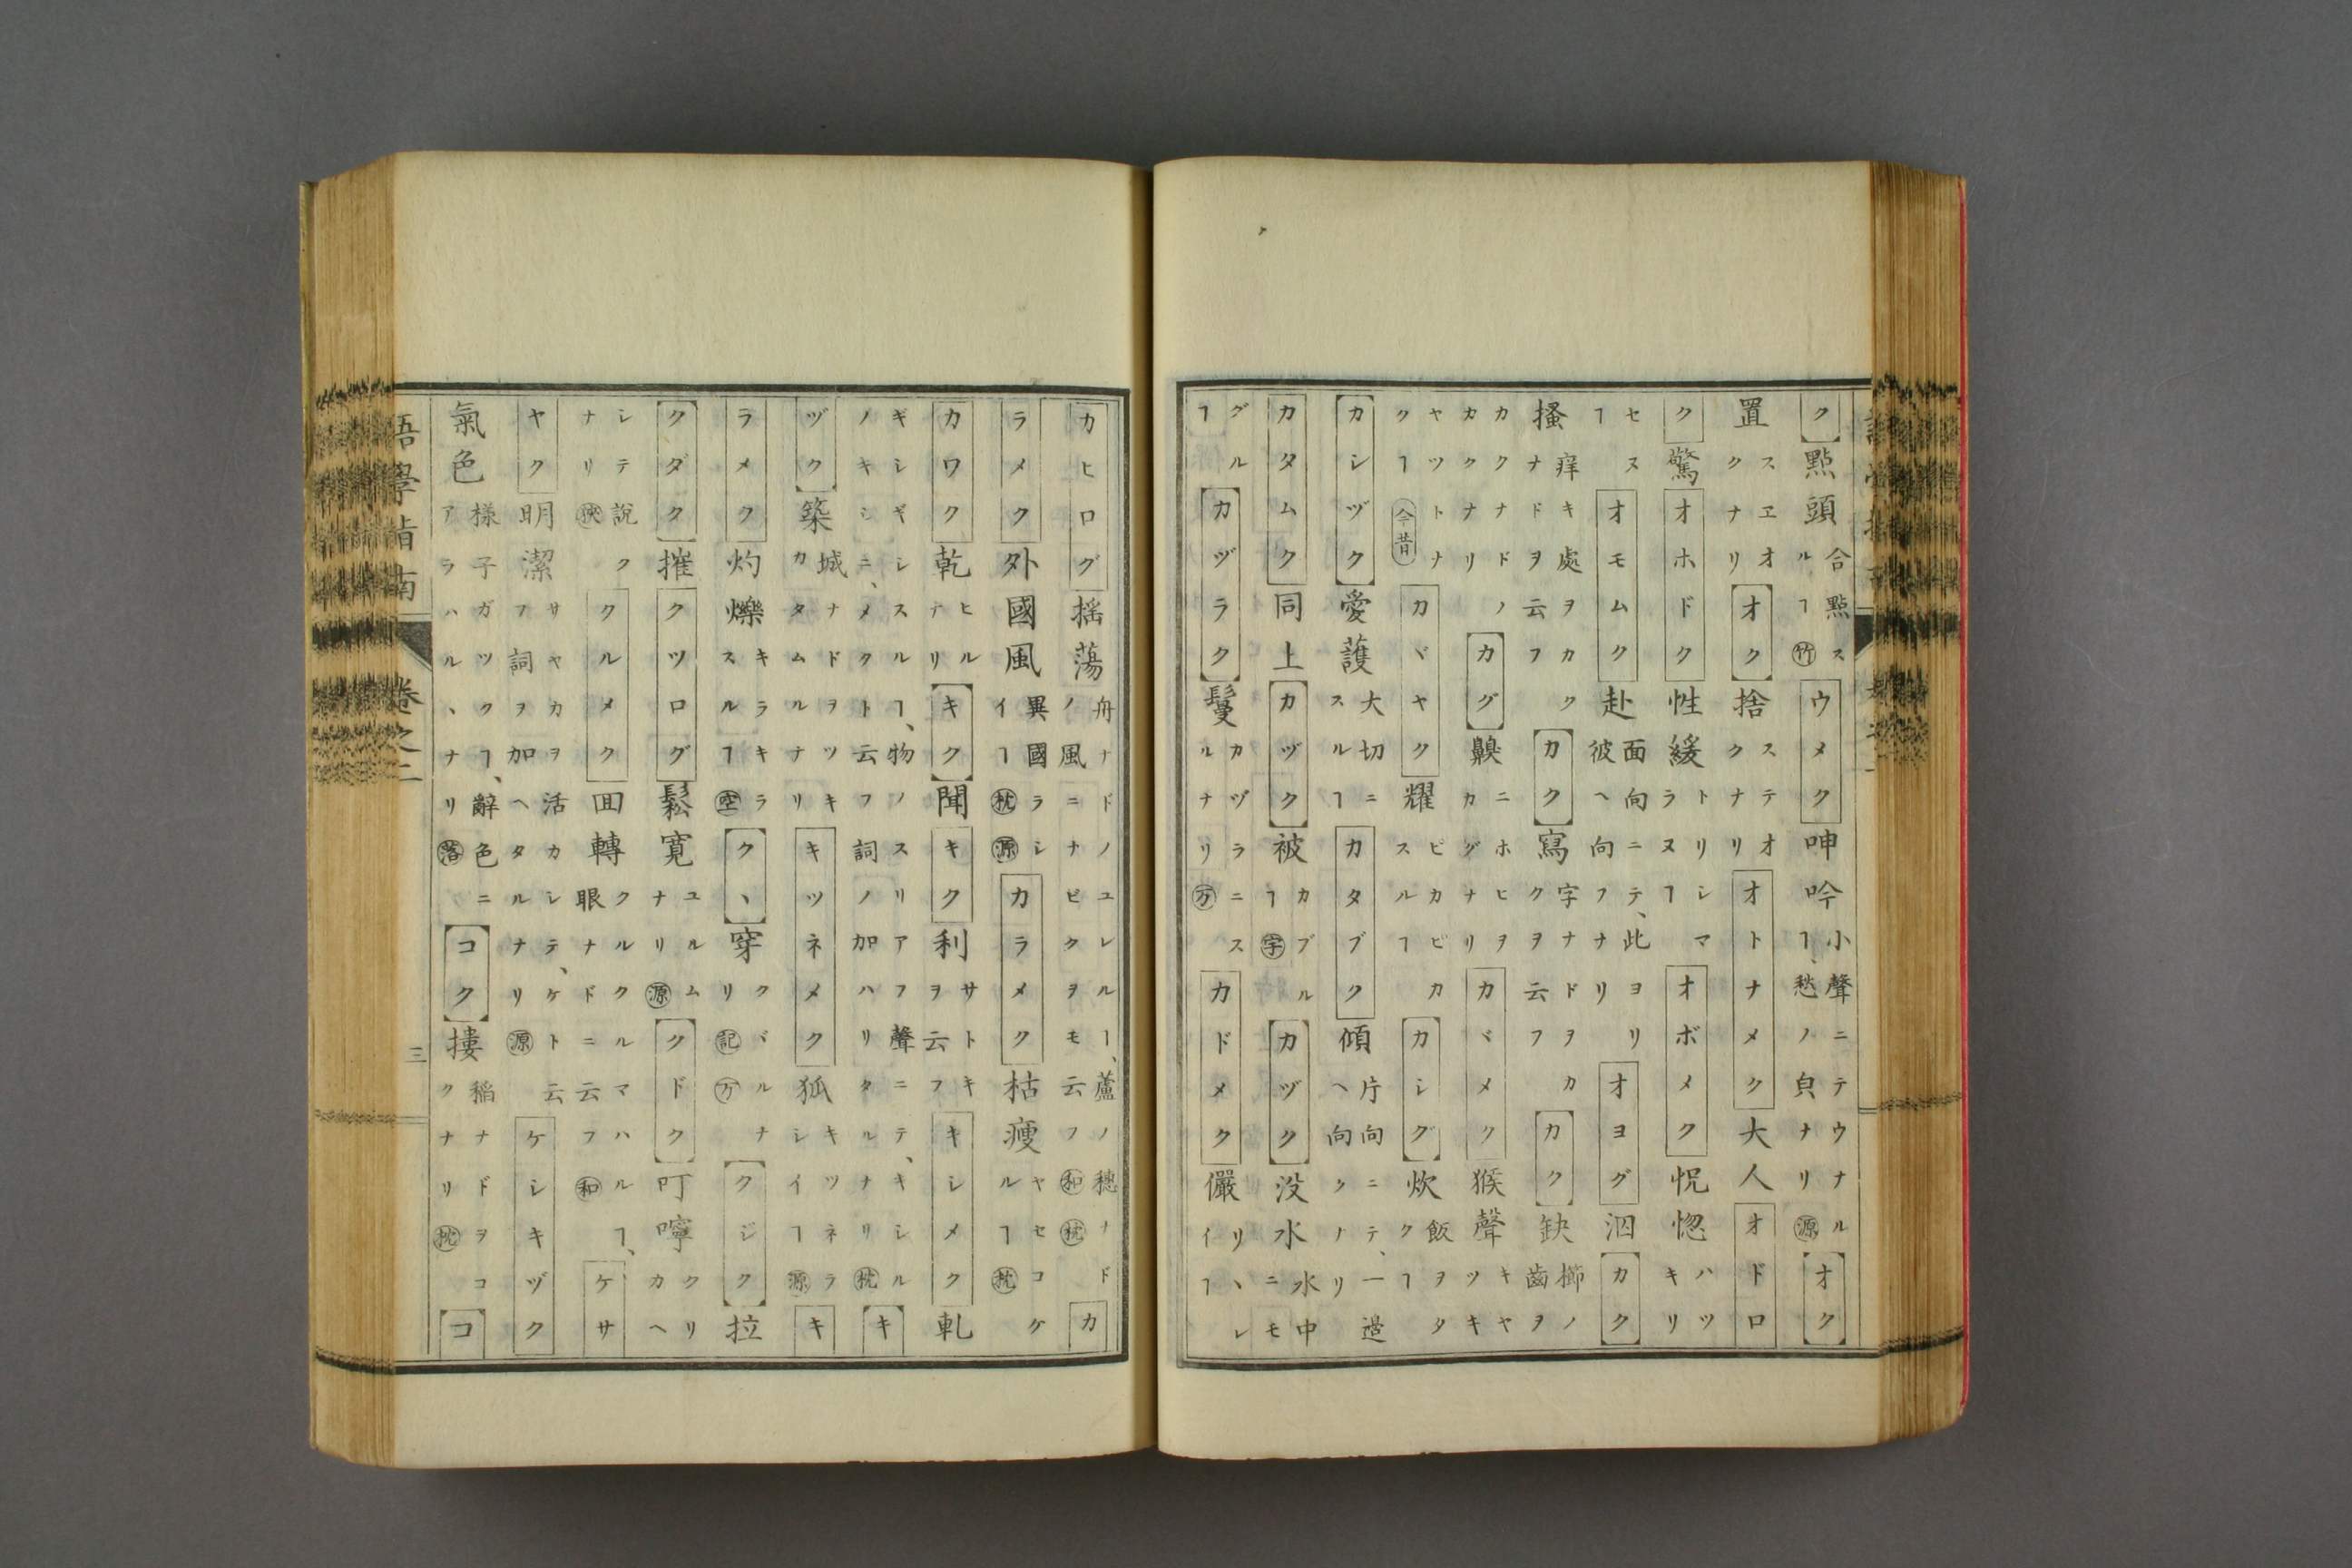 ク點頭合點スルヿ竹ウメク呻吟小聲ニテウナルヿ、愁ノ㒵ナリ源オク
置スヱオクナリオク捨ステオクナリオトナメク大人オドロ
ク驚オホドク性緩トリシマラヌヿオボメク怳惚ハツキリ
セヌヿオモムク赴面向ニテ、此ヨリ彼ヘ向フナリオヨグ泅カク
搔痒キ處ヲカクナドヲ云フカク寫字ナドヲカクヲ云フカク缺櫛ノ齒ヲ
カクナドノカクナリカグ齅ニホヒヲカグナリカヾメク猴聲キヤツキ
ヤツトナクヿ今昔カヾヤク耀ピカピカスルヿカシグ炊飯ヲタクヿ
カシヅク愛護大切ニスルヿカタブク傾片向ニテ、一邉ヘ向クナリ
カタムク同上カヅク被カブルヿ字カヅク没水水中ニモ
グルヿカヅラク鬘カヅラニスルナリ万カドメク儼リヽシイヿ
カヒログ揺蕩舟ナドノユレルヿ、蘆ノ穂ナドノ風ニナビクヲモ云フ和枕カ
ラメク外國風異國ラシイヿ枕源カラメク枯瘦ヤセコケルヿ枕
カワク乾ヒルナリキク聞キク利サトキヲ云フキシメク軋
ギシギシスルヿ、物ノスリアフ聲ニテ、キシルノキシニ、メクト云フ詞ノ加ハリタルナリ枕キ
ヅク築城ナドヲツキカタムルナリキツネメク狐キツネラシイヿ源キ
ラメク灼爍キラキラスルヿ空クヽ穿クヾルナリ記万クジク拉
クダク摧クツログ鬆寛ユルムナリ源クドク叮嚀クリカヘ
シテ說クナリ狹クルメク囬轉クルクルマハルヿ、眼ナドニ云フ和ケサ
ヤク明潔サヤカヲ活カシテ、ケト云フ詞ヲ加ヘタルナリ源ケシキヅク
氣色様子ガツクヿ、辭色ニアラハルヽナリ落コク摟稲ナドヲコクナリ枕コ
語學指南 卷之二 三